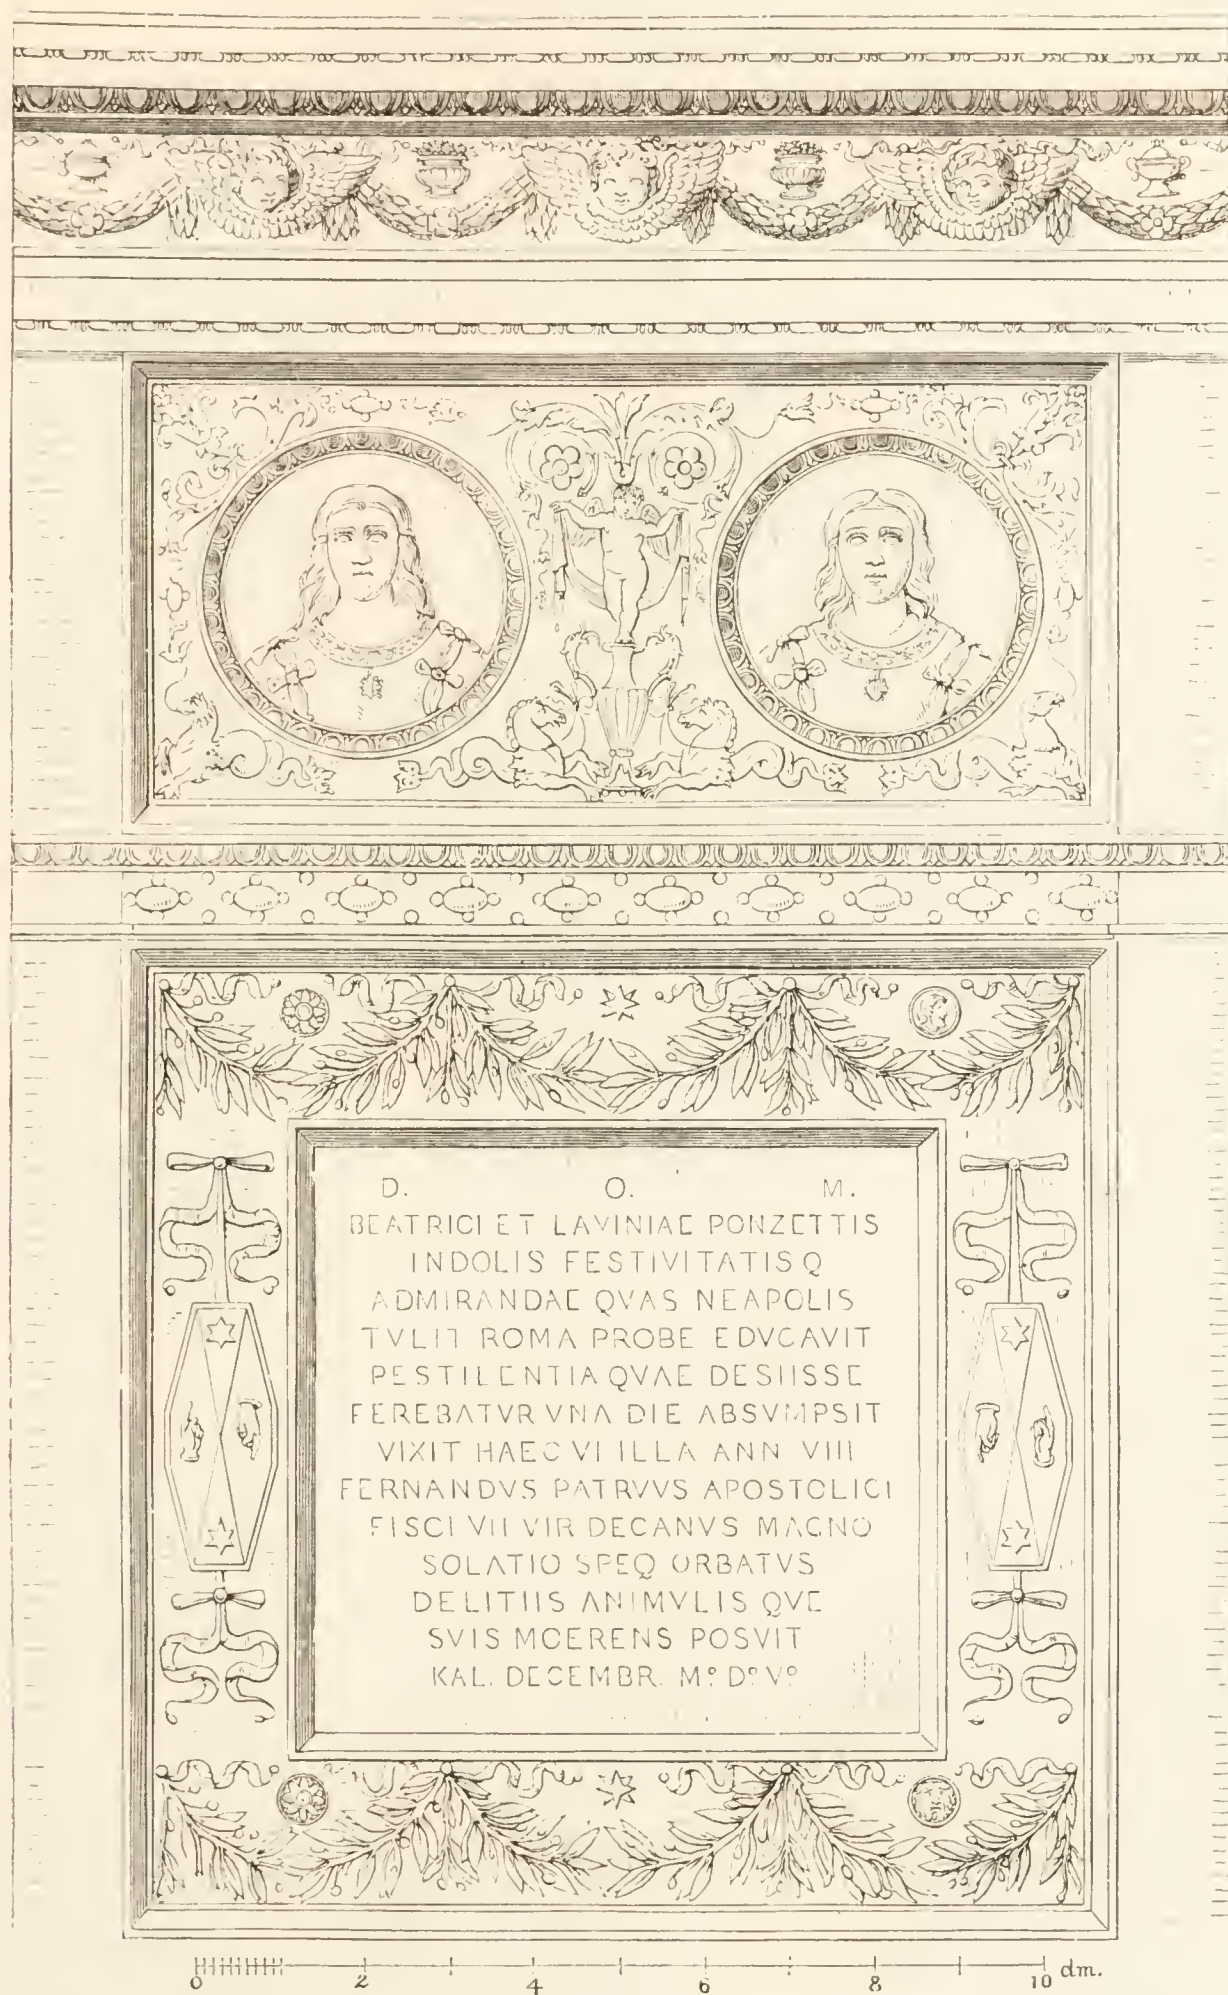 D. O. M.
BEATRICI ET LAVINIAE PONZETTIS
INDOLIS FESTIVITATISQ
ADMIRANDAE QVAS NEAPOLIS
TVLIT ROMA PROBE EDVCAVIT
PESTILENTIA QVAE DESIISSE
FEREBATVR VNA DIE ABSVMPSIT
VIXIT HAEC VI ILLA ANN VIII
FERNANDVS PATRVVS APOSTOLICI
FISCI VII VIR DECANVS MAGNO
SOLATIO SPEQ ORBATVS
DELITIIS ANIMVLIS QVE
SVIS MOERENS POSVIT
KAL. DECEMBR. Mº Dº Vº
0 2 4 6 8 10 dm.